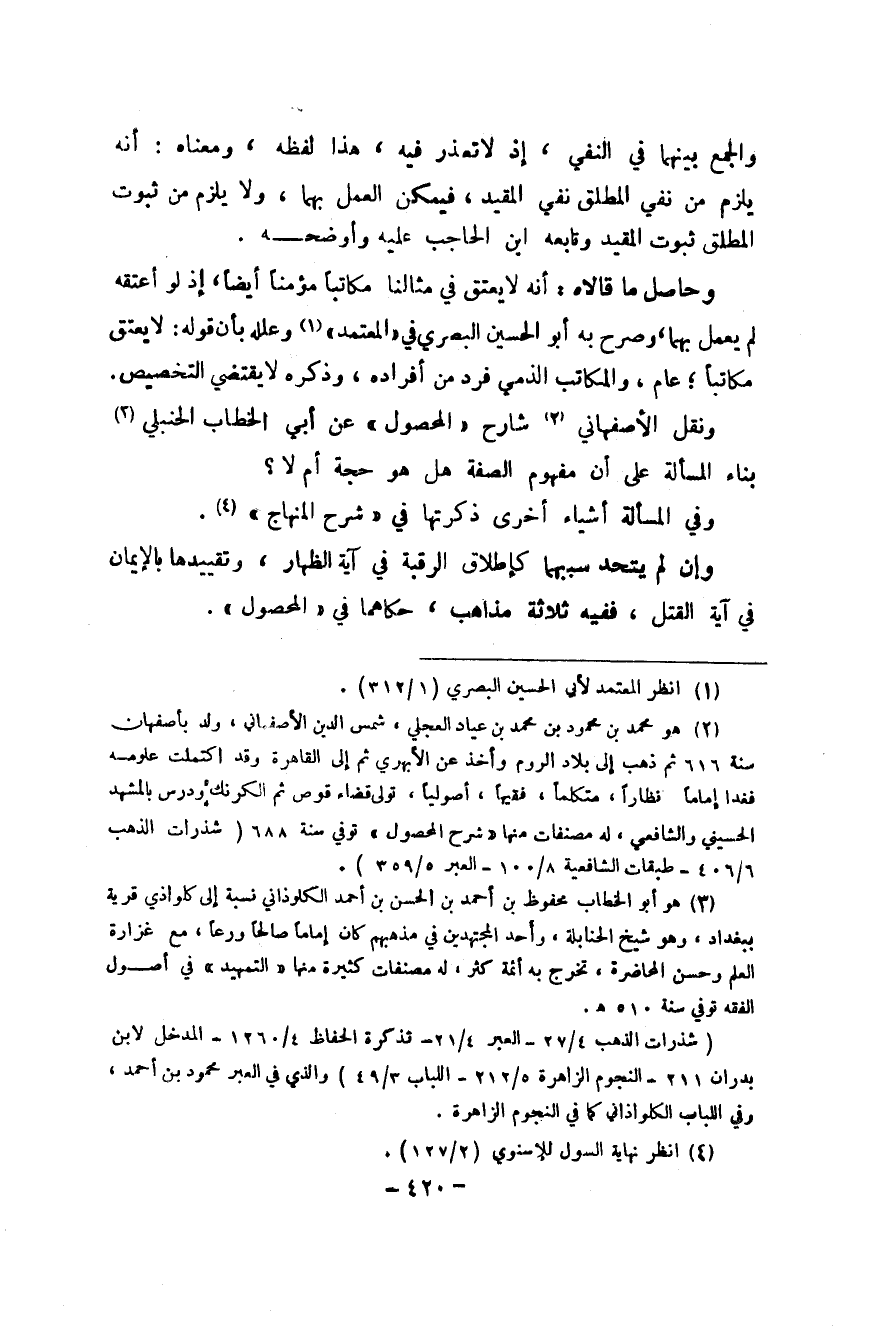 والجمع بينهما في النفي ، إذ لاتعذر فيه ، هذا لفظه ، ومعناه : أنه
يلزم من نفي المطلق نفي المقيد ، فيمكن العمل بهما ، ولا يلزم من ثبوت
المطلق ثبوت المقيد وتابعه ابن الحاجب عليه وأوضحـــه .
وحاصل ما قالاه : أنه لايعتق في مثالنا مكاتباً مؤمناً أيضاً، إذ لو أعتقه
لم يعمل بهما، وصرح به أبو الحسين البصري في «المعتمد» (١) وعلله بأن قوله : لايعتق
مكاتباً ؛ عام ، والمكاتب الذمي فرد من أفراده ، وذكره لايقتضي التخصيص.
ونقل الأصفهاني (٢) شارح « المحصول » عن أبي الخطاب الحنبلي (٣)
بناء المسألة على أن مفهوم الصفة هل هو حجة أم لا ؟
وفي المسألة أشياء أخرى ذكرتها في « شرح المنهاج » (٤) .
وإن لم يتحد سببهما كإطلاق الرقبة في آية الظهار ، وتقييدها بالإيمان
في آية القتل ، ففيه ثلاثة مذاهب ، حكاهما في « المحصول » .
(١) انظر المعتمد لأبي الحسين البصري (٣١٢/١) .
(٢) هو محمد بن محمود بن محمد بن عياد العجلي ، شمس الدين الأصفهاني ، ولد بأصفهان
سنة ٦١٦ ثم ذهب إلى بلاد الروم وأخذ عن الأبهري ثم إلى القاهرة وقد اكتملت علومـه
فغدا إماماً نظاراً ، متكلماً ، فقيهاً ، أصولياً ، تولى قضاء قوص ثم الكرنك، ودرس بالمشهد
الحسيني والشافعي ، له مصنفات منها « شرح المحصول » توفي سنة ٦٨٨ ( شذرات الذهب
٤٠٦/٦ - طبقات الشافعية ١٠٠/٨ - العبر ٣٥٩/٥ ) .
(٣) هو أبو الخطاب محفوظ بن أحمد بن الحسن بن أحمد الكلوذاني نسبة إلى كلواذي قرية
ببغداد ، وهو شيخ الحنابلة ، وأحد المجتهدين في مذهبهم كان إماماً صالحاً ورعاً ، مع غزارة
العلم وحسن المحاضرة ، تخرج به أئمة كثر ، له مصنفات كثيرة منها « التمهيد » في أصـــول
الفقه توفي سنة ٥١٠ هـ .
( شذرات الذهب ٢٧/٤ - العبر ٢١/٤ - تذكرة الحفاظ ١٢٦٠/٤ - المدخل لابن
بدران ٢١١ - النجوم الزاهرة ٢١٢/٥ - اللباب ٤٩/٣ ) والذي في العبر محمود بن أحمد ،
وفي اللباب الكلواذاني كما في النجوم الزاهرة .
(٤) انظر نهاية السول للإسنوي (١٢٧/٢) .
- ٤٢٠ -